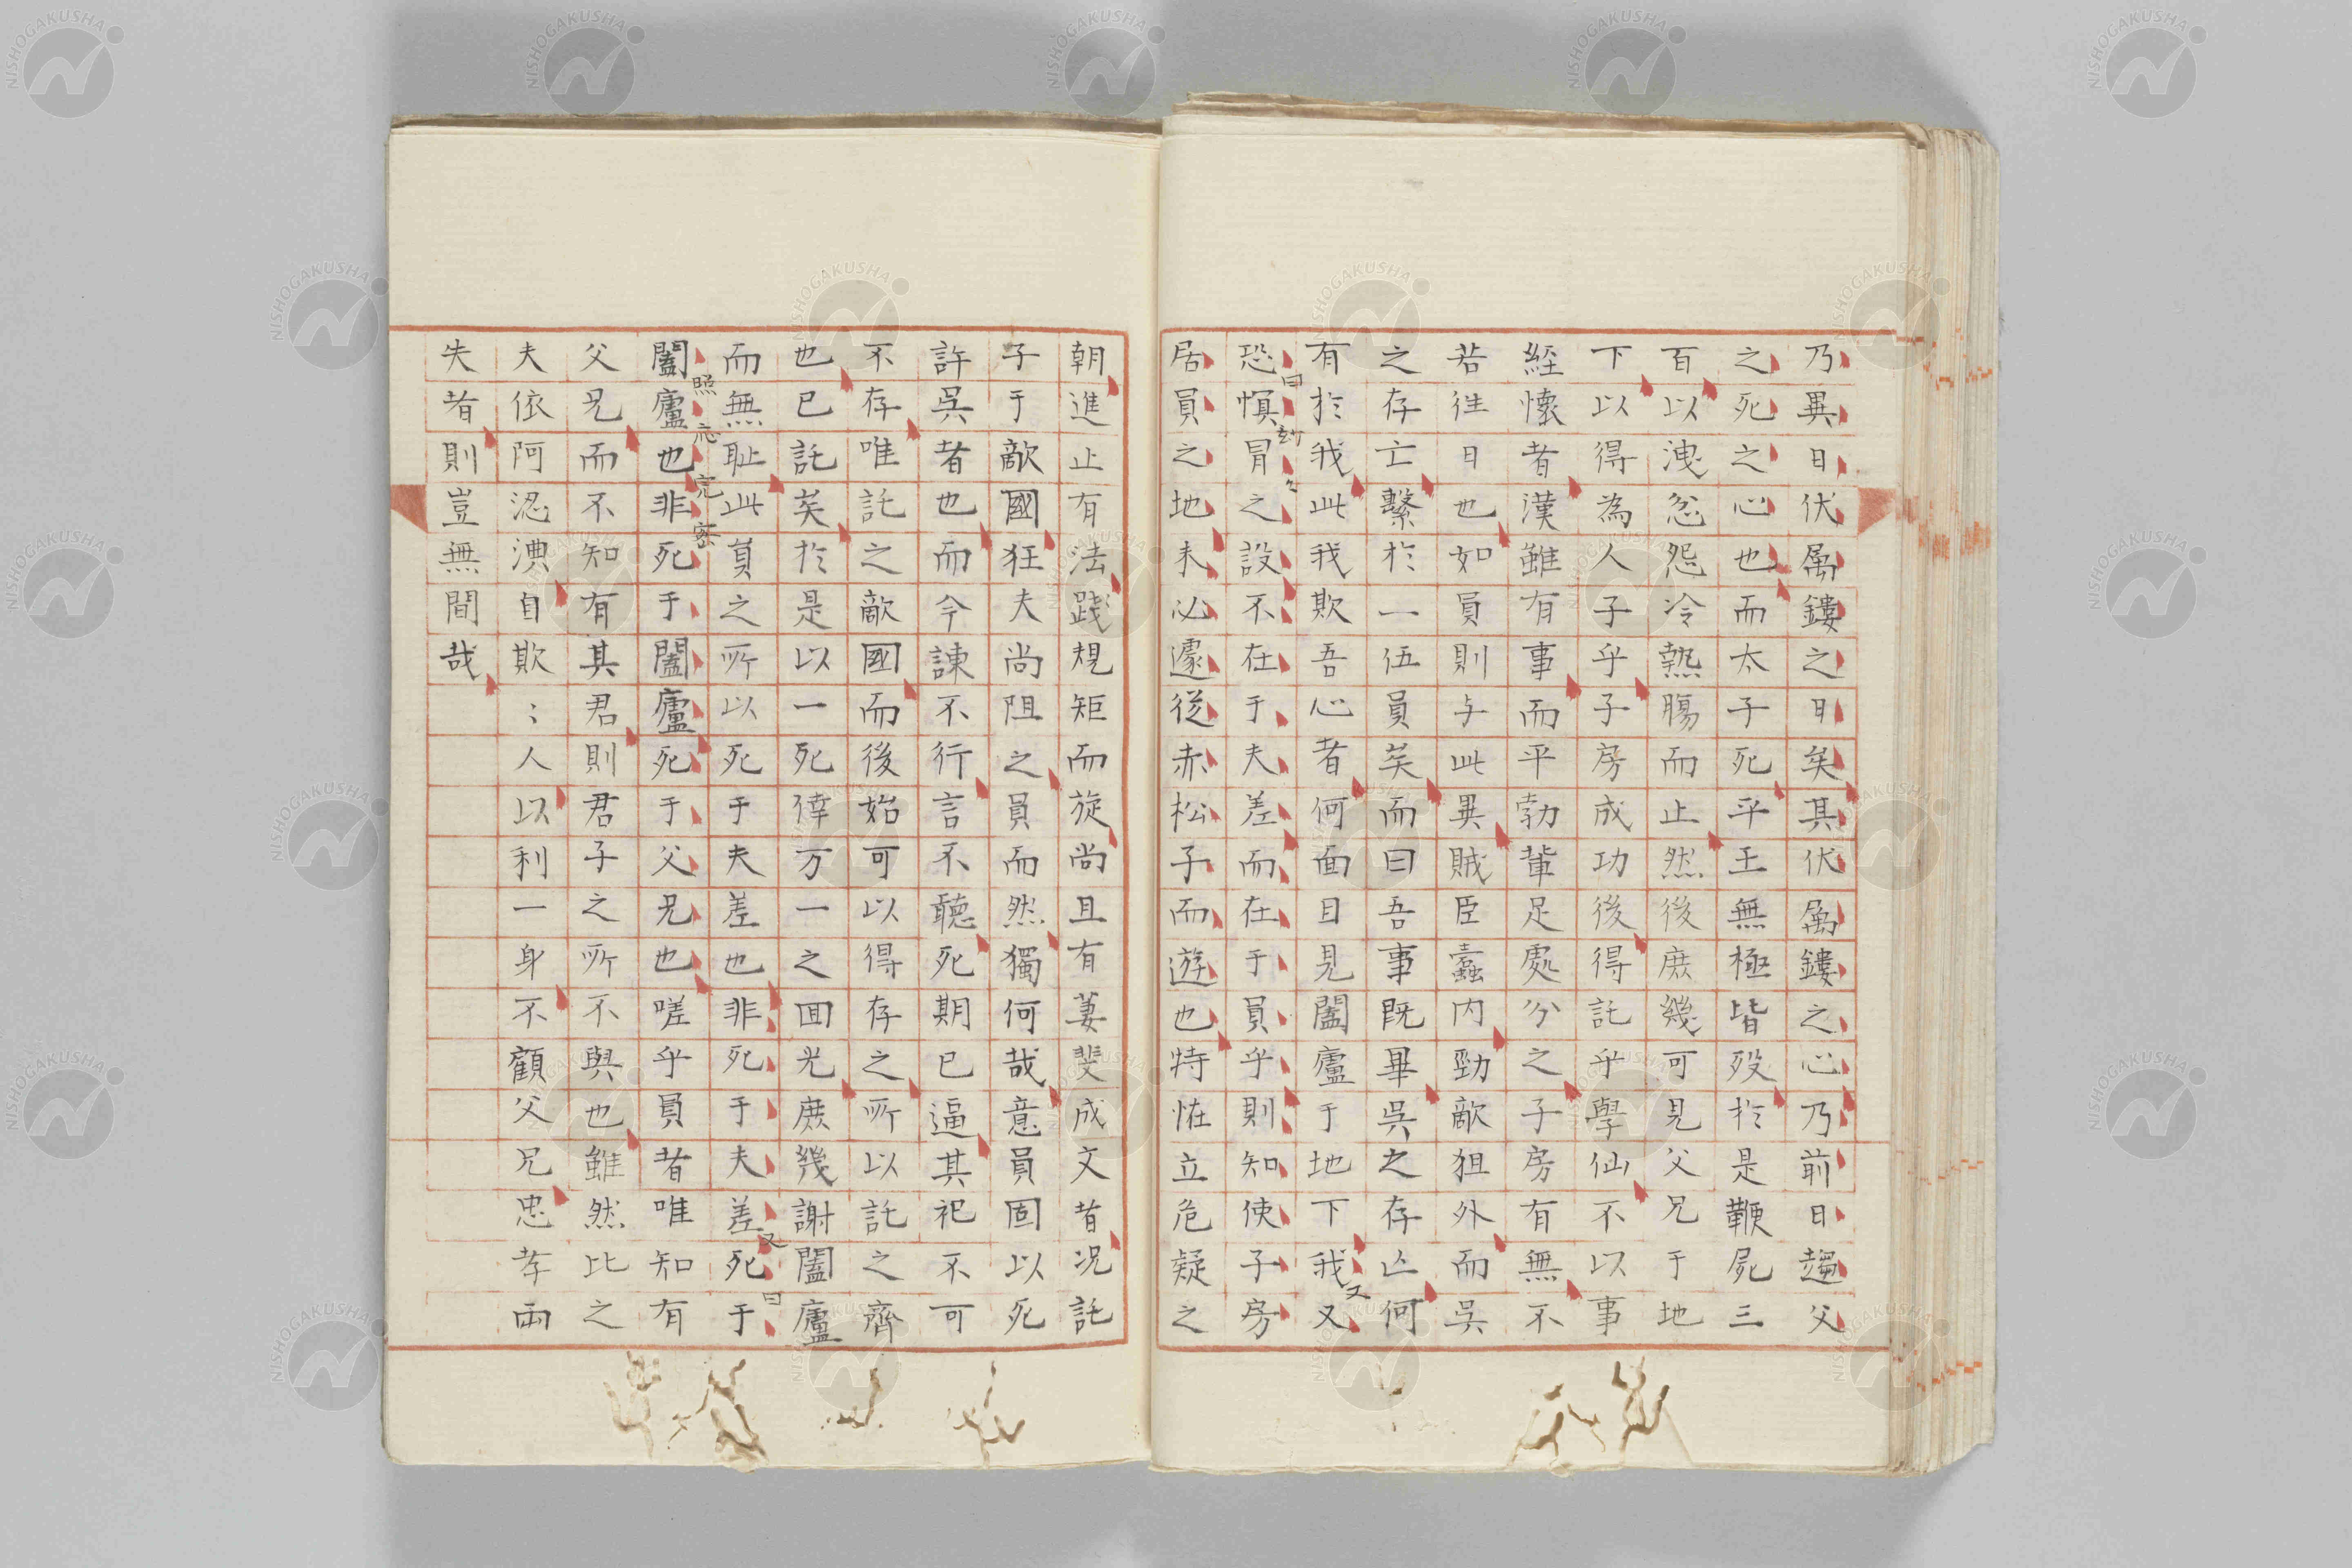 乃異日伏属鏤之日矣其伏属鏤之心乃前日趨父
之死之心也而太子死平王無極皆歿於是鞭屍三
百以洩忿怨冷熱膓而止然後庶幾可見父兄于地
下以得為人子乎子房成功後得託乎學仙不以事
経懷者漢雖有事而平勃輩足處分之子房有無不
若徃日也如員則与此異賊臣蠹内勁敵狙外而吳
之存亡繫於一伍員矣而曰吾事既畢吳之存亡何
有於我此我欺吾心者何面目見闔廬于地下我又
又
恐惧冒之設不在于夫差而在于員乎則知使子房
曰
居員之地未必遽従赤松子而遊也特恠立危疑之
朝進止有法踐規矩而旋尚且有萋斐成文者况託
子于敵國狂夫尚阻之員而然獨何哉意員固以死
許吳者也而今諫不行言不聽死期已逼其祀不可
不存唯託之敵國而後始可以得存之所以託之齊
也已託矣於是以一死倖万一之囬光庶幾謝闔廬
而無耻此員之所以死于夫差也非死于夫差死于
又曰
闔廬也非死于闔廬死于父兄也嗟乎員者唯知有
照応完密
父兄而不知有其君則君子之所不與也雖然比之
夫依阿淟涊自欺〻人以利一身不顧父兄忠孝両
失者則豈無間哉
NISHOGAKUSHA